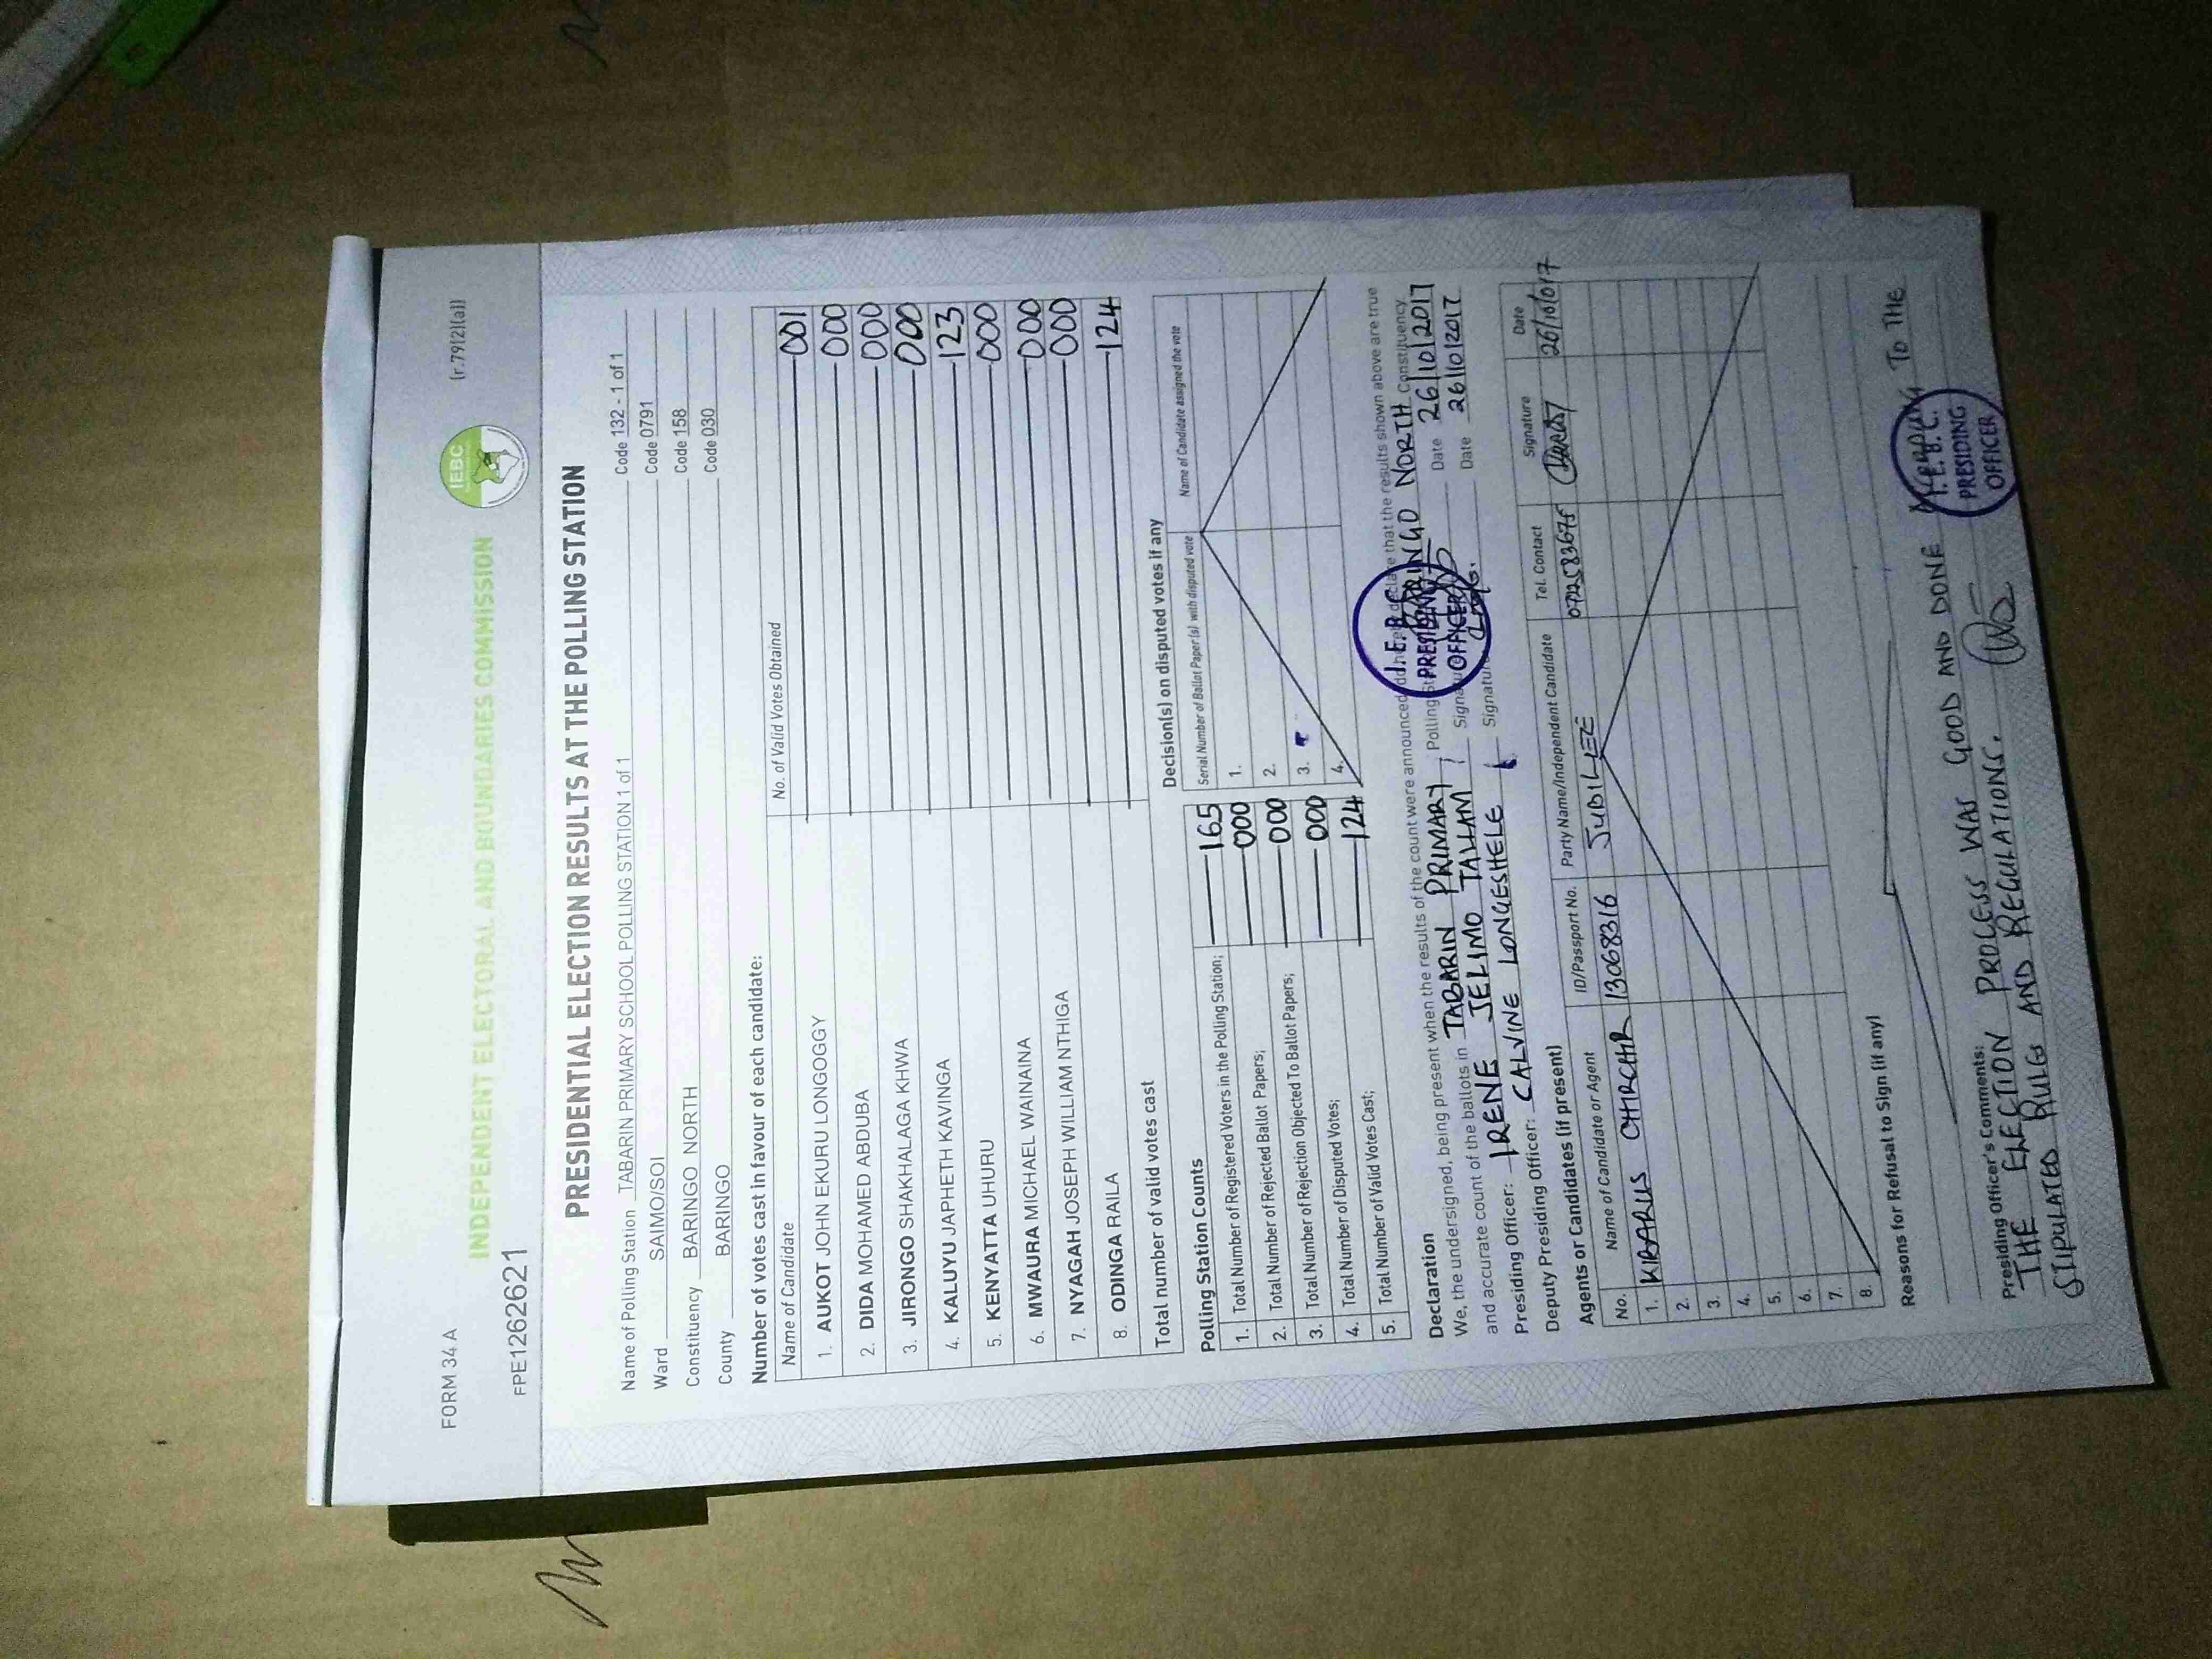 FORM 34 A (r.79(2)(a))
INDEPENDENT ELECTORAL AND BOUNDARIES COMMISSION IEBC
FPE1262621
PRESIDENTIAL ELECTION RESULTS AT THE POLLING STATION
Name of Polling Station TABARIN PRIMARY SCHOOL POLLING STATION 1 of 1 Code 132 - 1 of 1
Ward SAIMO/SOI Code 0791
Constituency BARINGO NORTH Code 158
County BARINGO Code 030
Number of votes cast in favour of each candidate:
Name of Candidate No. of Valid Votes Obtained
1. AUKOT JOHN EKURU LONGOGGY 001
2. DIDA MOHAMED ABDUBA 000
3. JIRONGO SHAKHALAGA KHWA 000
4. KALUYU JAPHETH KAVINGA 000
5. KENYATTA UHURU 123
6. MWAURA MICHAEL WAINAINA 000
7. NYAGAH JOSEPH WILLIAM NTHIGA 000
8. ODINGA RAILA 000
Total number of valid votes cast 124
Polling Station Counts
1. Total Number of Registered Voters in the Polling Station; 165
2. Total Number of Rejected Ballot Papers; 000
3. Total Number of Rejection Objected To Ballot Papers; 000
4. Total Number of Disputed Votes; 000
5. Total Number of Valid Votes Cast; 124
Decision(s) on disputed votes if any
Serial Number of Ballot Paper(s) with disputed vote Name of Candidate assigned the vote
1.
2.
3.
4.
Declaration
We, the undersigned, being present when the results of the count were announced, do hereby declare that the results shown above are true
and accurate count of the ballots in TABARIN PRIMARY Polling BARINGO NORTH Constituency
Presiding Officer: IRENE JELIMO TALLAM Signature Date 26/10/2017
Deputy Presiding Officer: CALVINE LONGESHELE Signature Date 26/10/2017
I.E.B.C. PRESIDING OFFICER
Agents or Candidates (if present)
No. Name of Candidate or Agent ID/Passport No. Party Name/Independent Candidate Tel. Contact Signature Date
1. CHIRCHIR 13068316 JUBILEE 072583675 26/10/017
2.
3.
4.
5.
6.
7.
8.
Reasons for Refusal to Sign (if any)
Presiding Officer's Comments:
THE ELECTION PROCESS WAS GOOD AND DONE TO THE
STIPULATED RULES AND REGULATIONS.
I.E.B.C.
PRESIDING
OFFICER